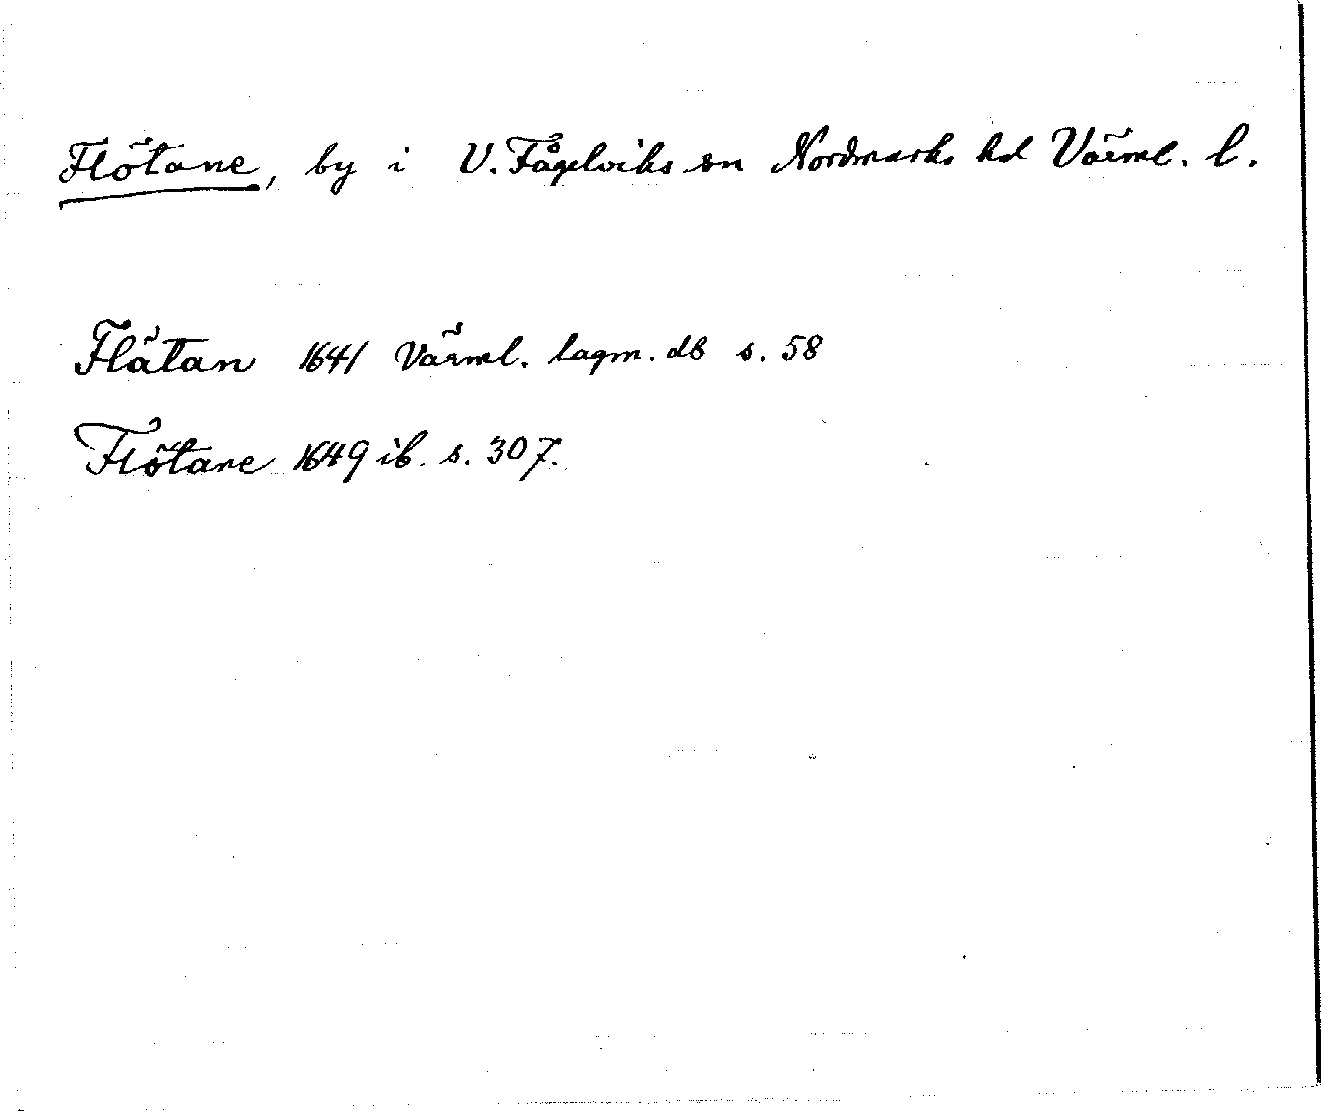 Flötane, by i V. Fågelviks sn Nordmarks hd Värml. l.
Flätan 1641 Värml. lagm. db s. 58
Flötane 1649 ib. s. 307.